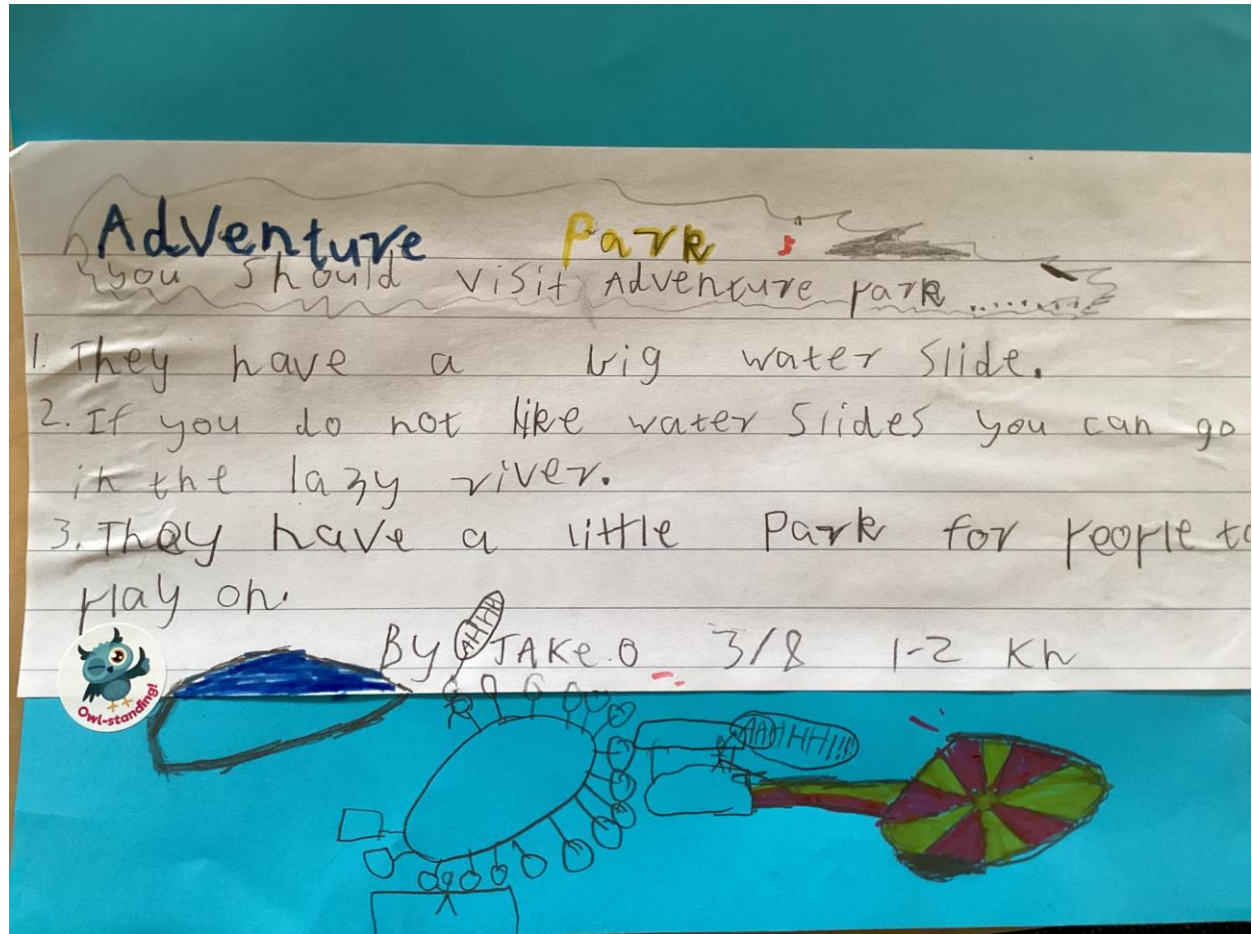 Adventure Park :
you should visit Adventure park .......
1. They have a big water slide.
2. If you do not like water slides you can go
in the lazy river.
3. They have a little Park for people to
play on.
AHHH
By JAKe.O 3/8 1-2 Kh
Owl-standing!
AAAHHH!!!